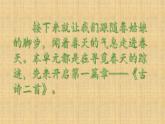 接下来就让我们跟随春姑娘
的脚步，闻着春天的气息走进春
天。本单元都是在寻觅春天的踪
迹，请看开启第一篇章——《古
诗二首》